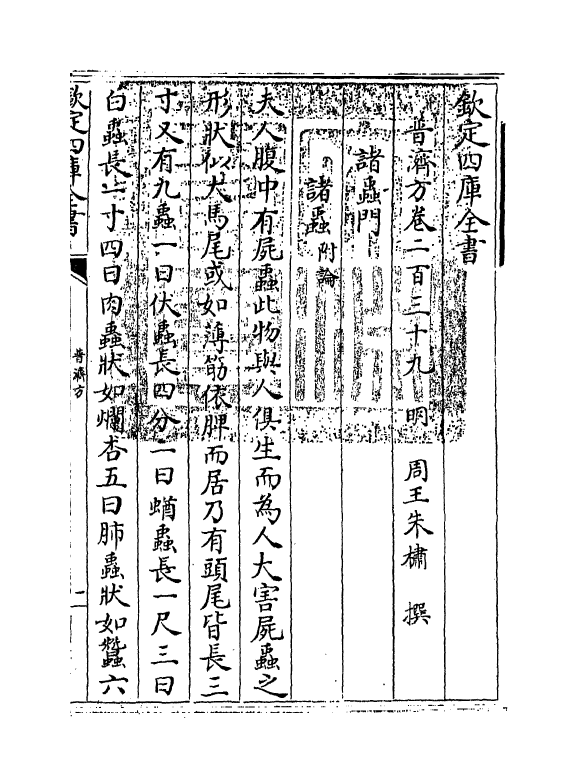 欽定四庫全書
普濟方卷二百三十九 明 周王朱橚 撰
諸蟲門
諸蟲附論
夫人腹中有屍蟲此物與人俱生而為人大害屍蟲之
形狀似犬馬尾或如薄筋依脾而居乃有頭尾皆長三
寸又有九蟲一曰伏蟲長四分二曰蛕蟲長一尺三曰
白蟲長一寸四曰肉蟲狀如爛杏五曰肺蟲狀如蠶六
欽定四庫全書
普濟方
一